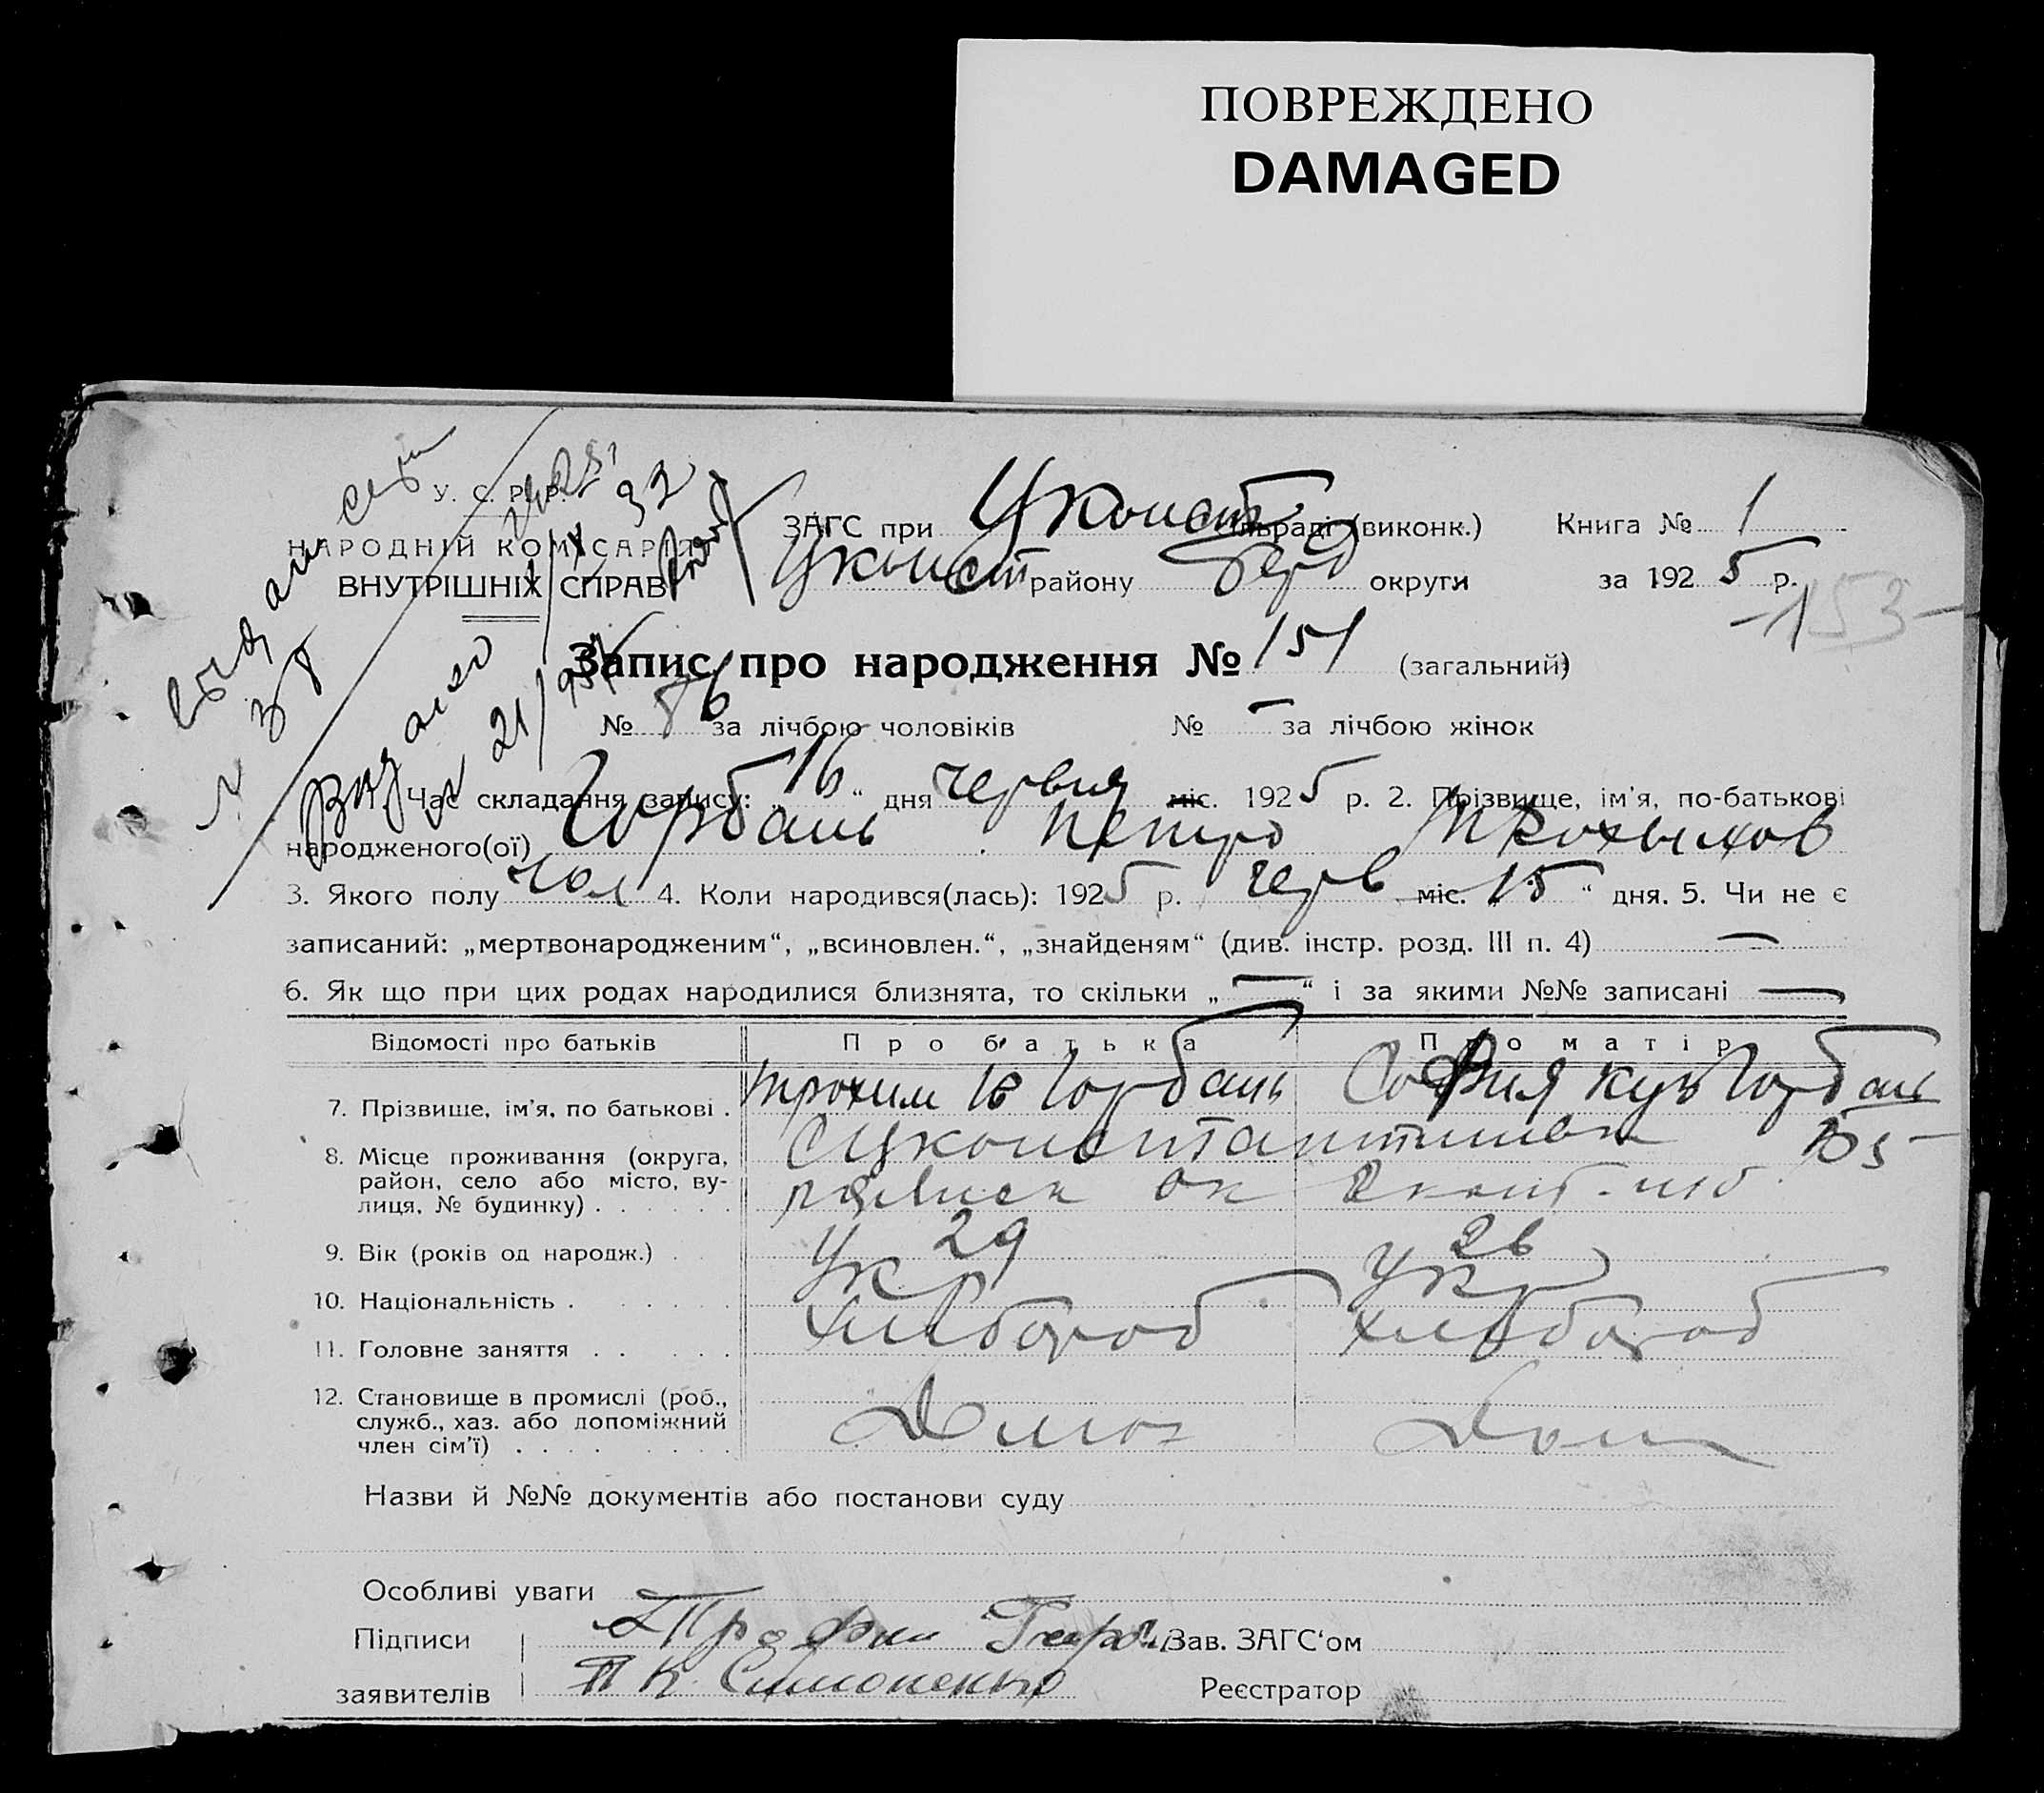 ПОВРЕЖДЕНО
DAMAGED
У. С. Р. Р.
НАРОДНІЙ КОМІСАРІЯТ
ВНУТРІШНІХ СПРАВ
ЗАГС при Цконст сільраді (виконк.) Книга № 1
Цконст району Берд округи за 1925 р.
-153-
Запис про народження № 151 (загальний)
№ 86 за лічбою чоловіків № – за лічбою жінок
Видано
21/
1. Час складання запису: „16“ дня червня міс. 1925 р. 2. Прізвище, ім'я, по-батькові
народженого(ої) Горбань Петро Трохымов
3. Якого полу чол 4. Коли народився(лась): 1925 р. черв міс. „15“ дня. 5. Чи не є
записаний: „мертвонародженим“, „всиновлен.“, „знайденям“ (див. інстр. розд. III п. 4) —
6. Як що при цих родах народилися близнята, то скільки „—“ і за якими №№ записані —
Відомості про батьків Про батька Про матір
7. Прізвише, ім'я, по батькові . Трохим Ів Горбань София Куз Горбань
8. Місце проживання (округа,
район, село або місто, ву-
лиця, № будинку) . . . . . .
9. Вік (років од народж.) . 29 26
10. Національність . . . . . . Укр Укр
11. Головне заняття . . . . . хлибороб хлибороб
12. Становище в промислі (роб.,
служб., хаз. або допоміжний
член сім'ї) . . . . . . . . Дом
Назви й №№ документів або постанови суду
Особливі уваги
Підписи Зав. ЗАГС'ом
заявителів П К Симоненко Реєстратор